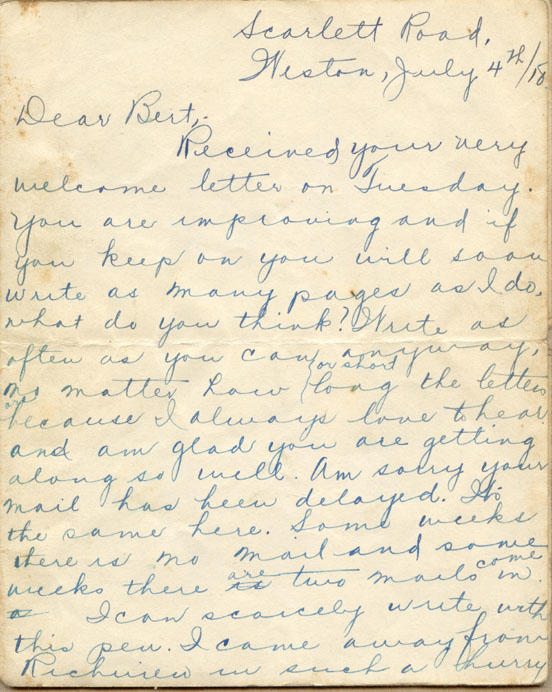 Scarlett Road,
Weston, July 4th/18
Dear Bert,-
Received your very
welcome letter on Tuesday.
You are improving and if
you keep on you will soon
write as many pages as I do,
what do you think? Write as
often as you can anyway,
no matter how long (or short) the letters
are because I always love to hear
and am glad you are getting
along so well. Am sorry your
mail has been delayed. It's
the same here. Some weeks
there is no mail and some
weeks there are two mails come in.
I can scarcely write with
this pen. I came away from
Richview in such a hurry